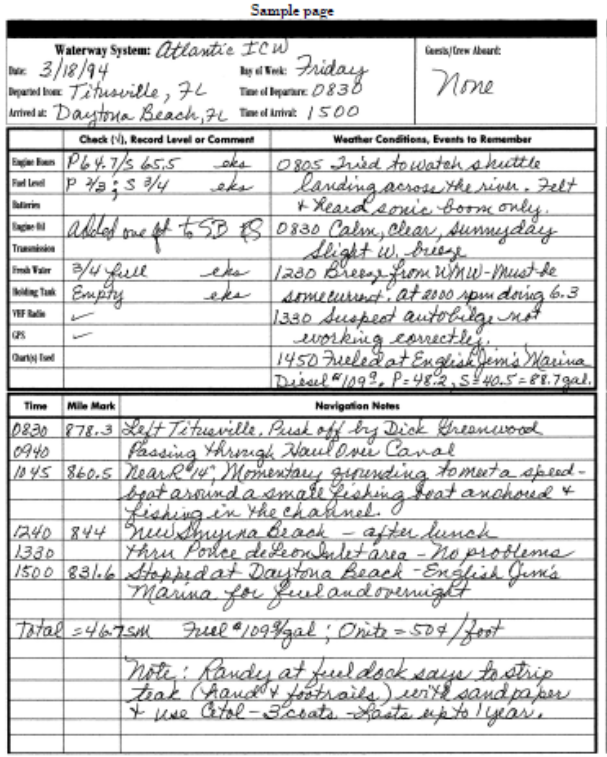 Sample page
Waterway System: Atlantic ICW
Guests/Crew Aboard:
Date: 3/18/94 Day of Week: Friday
None
Departed from: Titusville, FL Time of Departure: 0830
Arrived at: Daytona Beach, FL Time of Arrival: 1500
Check (√), Record Level or Comment Weather Conditions, Events to Remember
Engine Hours P64.7/S 65.5 eks 0805 Tried to watch shuttle
Fuel Level P 2/3; S 3/4 eks landing across the river. Felt
Batteries & heard sonic boom only.
Engine Oil added one pt to SB 0830 Calm, clear, sunny day
Transmission Slight W. breeze
Fresh Water 3/4 full eks 1230 Breeze from WNW - Must be
Holding Tank Empty eks some current. at 2000 rpm doing 6.3
VHF Radio ✓ 1330 Suspect auto bilge not
GPS ✓ working correctly.
Chart(s) Used 1450 Fueled at English Jim's Marina
Diesel $1.09⁹. P=48.2, S=40.5=88.7 gal.
Time Mile Mark Navigation Notes
0830 878.3 Left Titusville. Push off by Dick Greenwood
0940 Passing through Haul Over Canal
1045 860.5 Near R "14", Momentary grounding to meet a speed-
boat around a small fishing boat anchored &
fishing in the channel.
1240 844 New Smyrna Beach - after lunch
1330 thru Ponce de Leon Inlet area - No problems
1500 831.6 Stopped at Daytona Beach - English Jim's
Marina for fuel and overnight
Total = 46.7 sm Fuel $1.09⁹/gal; Onite = 50¢/foot
Note: Randy at fuel dock says to strip
teak (hand & footrails) with sandpaper
& use Cetol - 3 coats - Lasts up to 1 year.